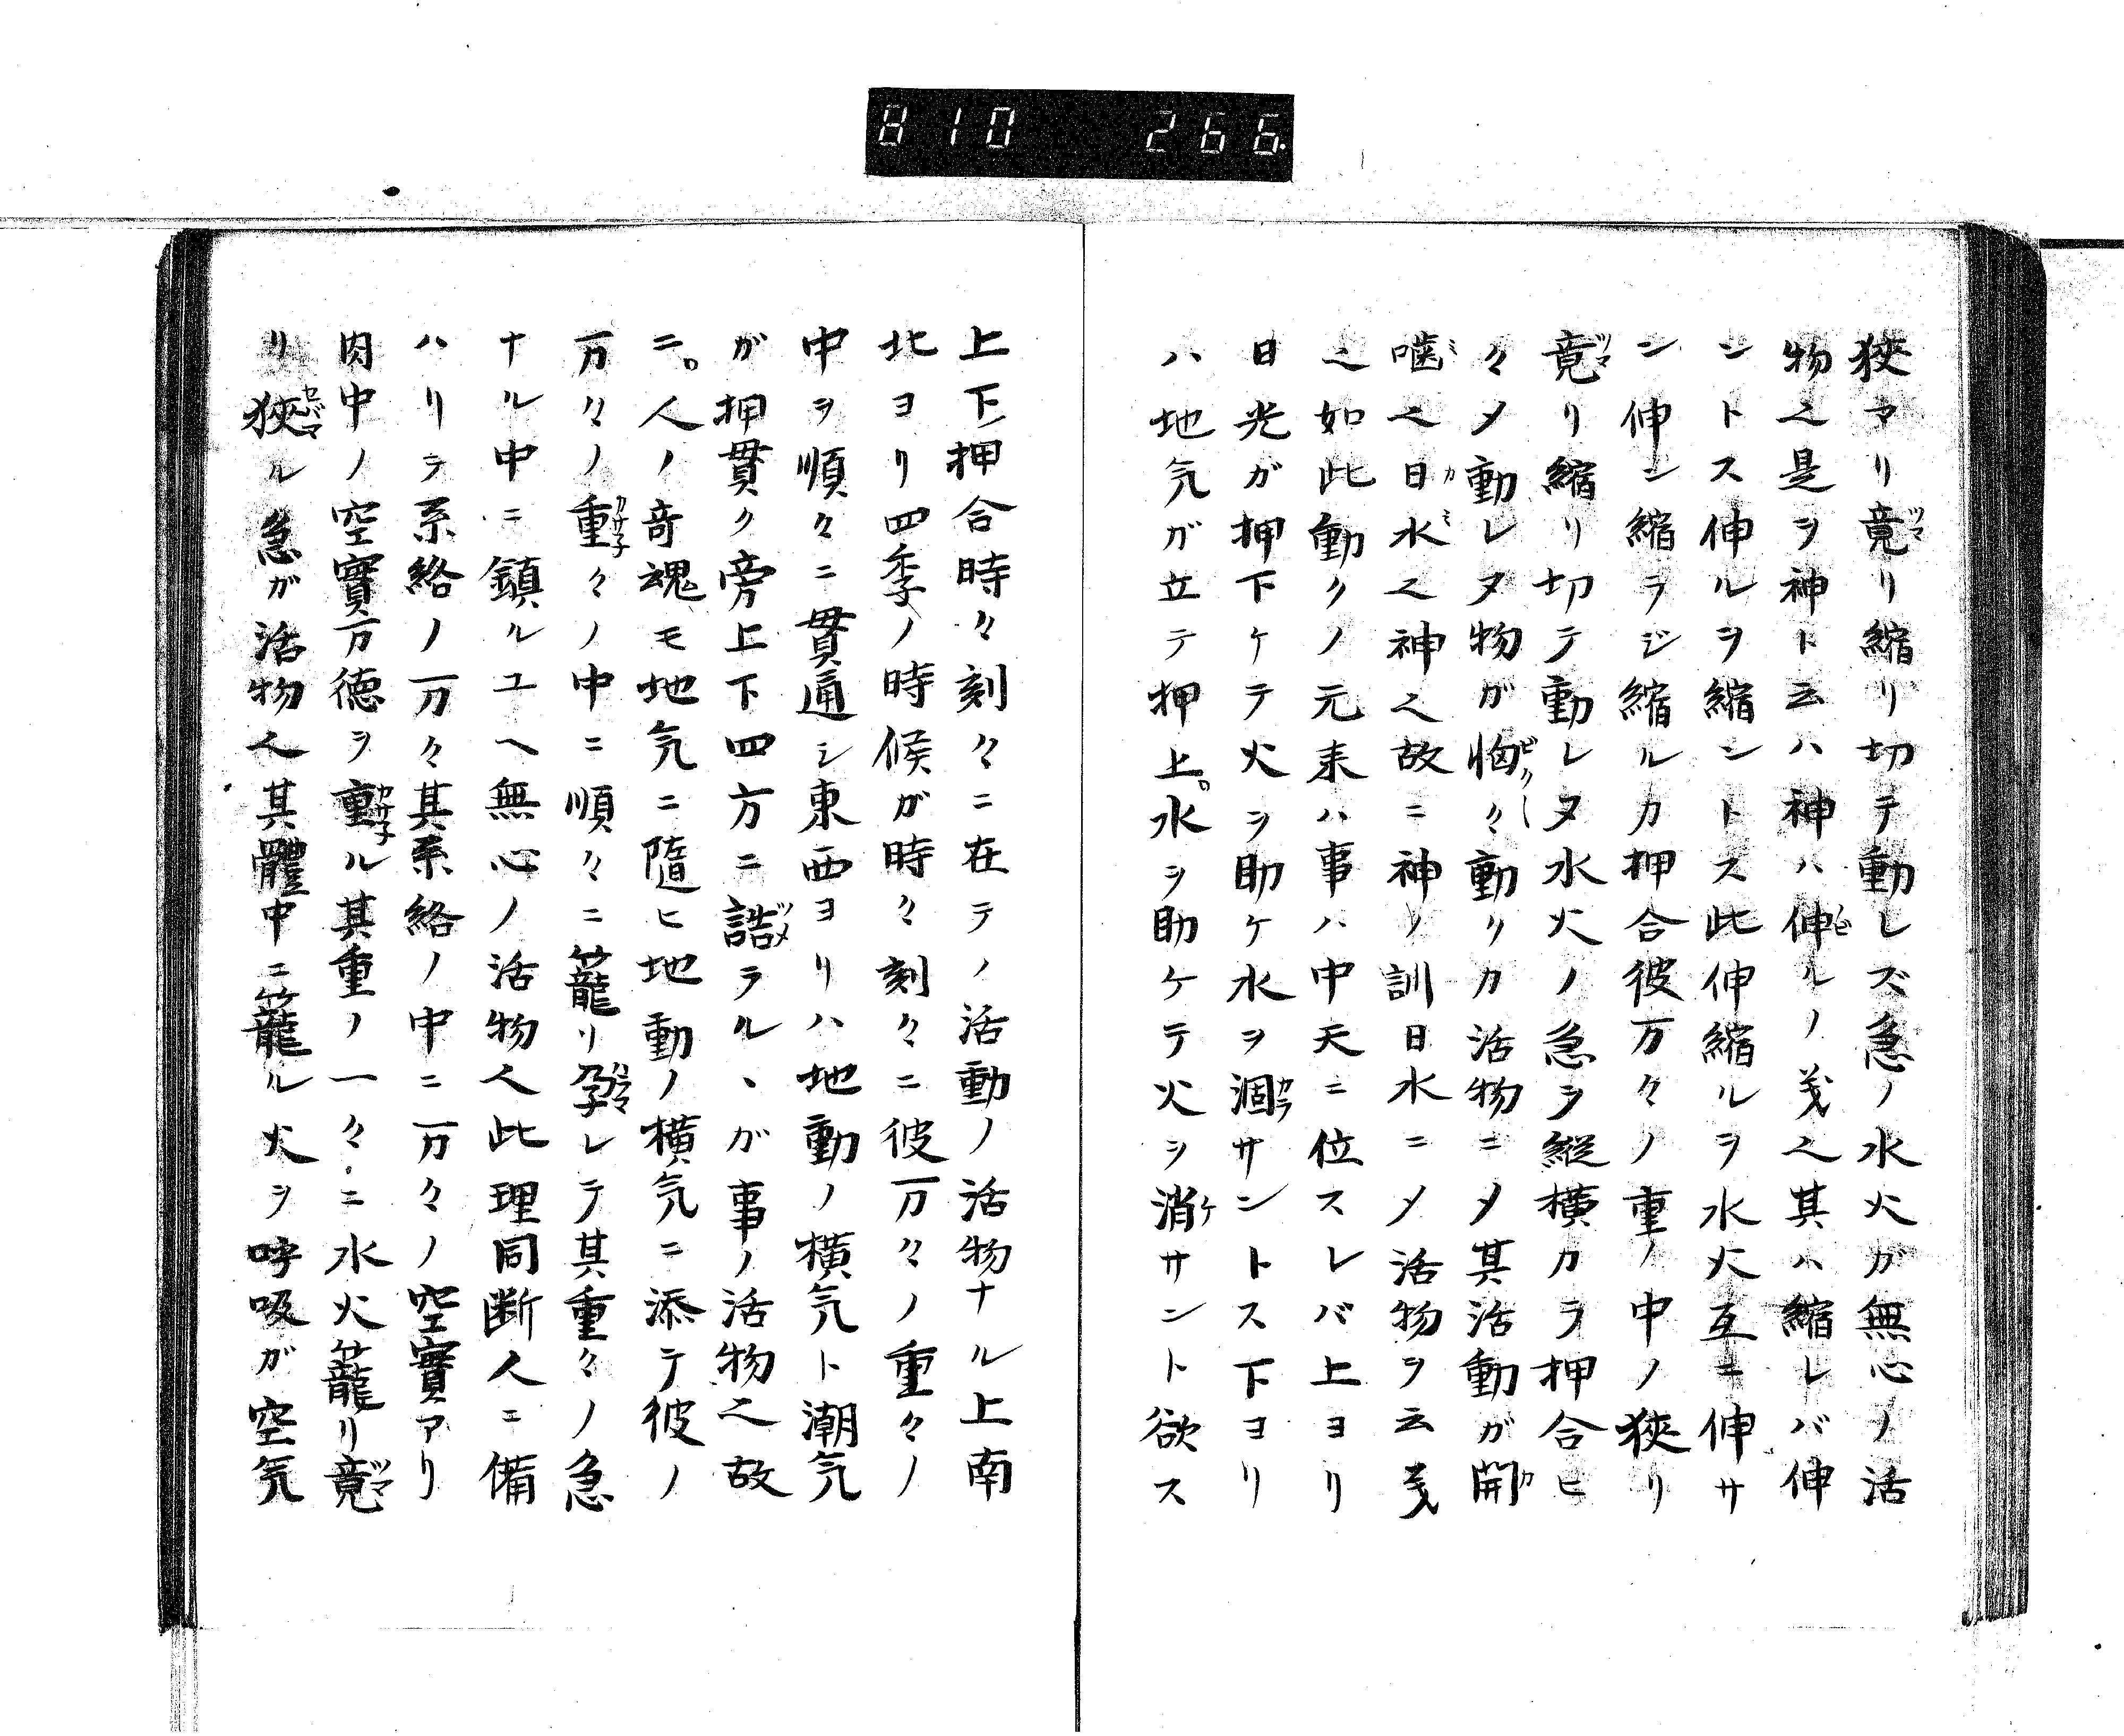 810 266
狹マリ竟リ縮リ切テ動レズ急ノ水火ガ無心ノ活
物〱是ヲ神ト云ハ神ハ伸ルノ義〱其ハ縮レバ伸
ントス伸ルヲ縮ントス此伸縮ルヲ水火互ニ伸サ
ン伸ン縮ラジ縮ルカ押合彼万々ノ重ノ中ノ狹リ
竟リ縮リ切テ動レヌ水火ノ急ヲ縦横カラ押合ヒ
々〆動レヌ物ガ恟々動クカ活物ニ〆其活動ガ開
噛〱日水〱神〱故ニ神ノ訓日水ニ〆活物ヲ云義
〱如此動クノ元来ハ事ハ中天ニ位スレバ上ヨリ
日光ガ押下ケテ火ヲ助ケ水ヲ涸サントス下ヨリ
ハ地気ガ立テ押上。水ヲ助ケテ火ヲ消サント欲ス
上下押合時々刻々ニ在テノ活動ノ活物ナル上南
北ヨリ四季ノ時候ガ時々刻々ニ彼万々ノ重々ノ
中ヲ順々ニ貫通シ東西ヨリハ地動ノ横気ト潮気
ガ押貫ク旁上下四方ニ誥ラル、ガ事ノ活物〱故
ニ。人ノ奇魂モ地気ニ隨ヒ地動ノ横気ニ添テ彼ノ
万々ノ重々ノ中ニ順々ニ籠リ孕レテ其重々ノ急
ナル中ニ鎮ルユヘ無心ノ活物〱此理同断人ニ備
ハリテ系絡ノ万々其系絡ノ中ニ万々ノ空實アリ
肉中ノ空實万徳ヲ重ル其重ノ一々ニ水火籠リ竟
リ狹ル急ガ活物〱其軆中ニ籠ル火ヲ呼吸ガ空気